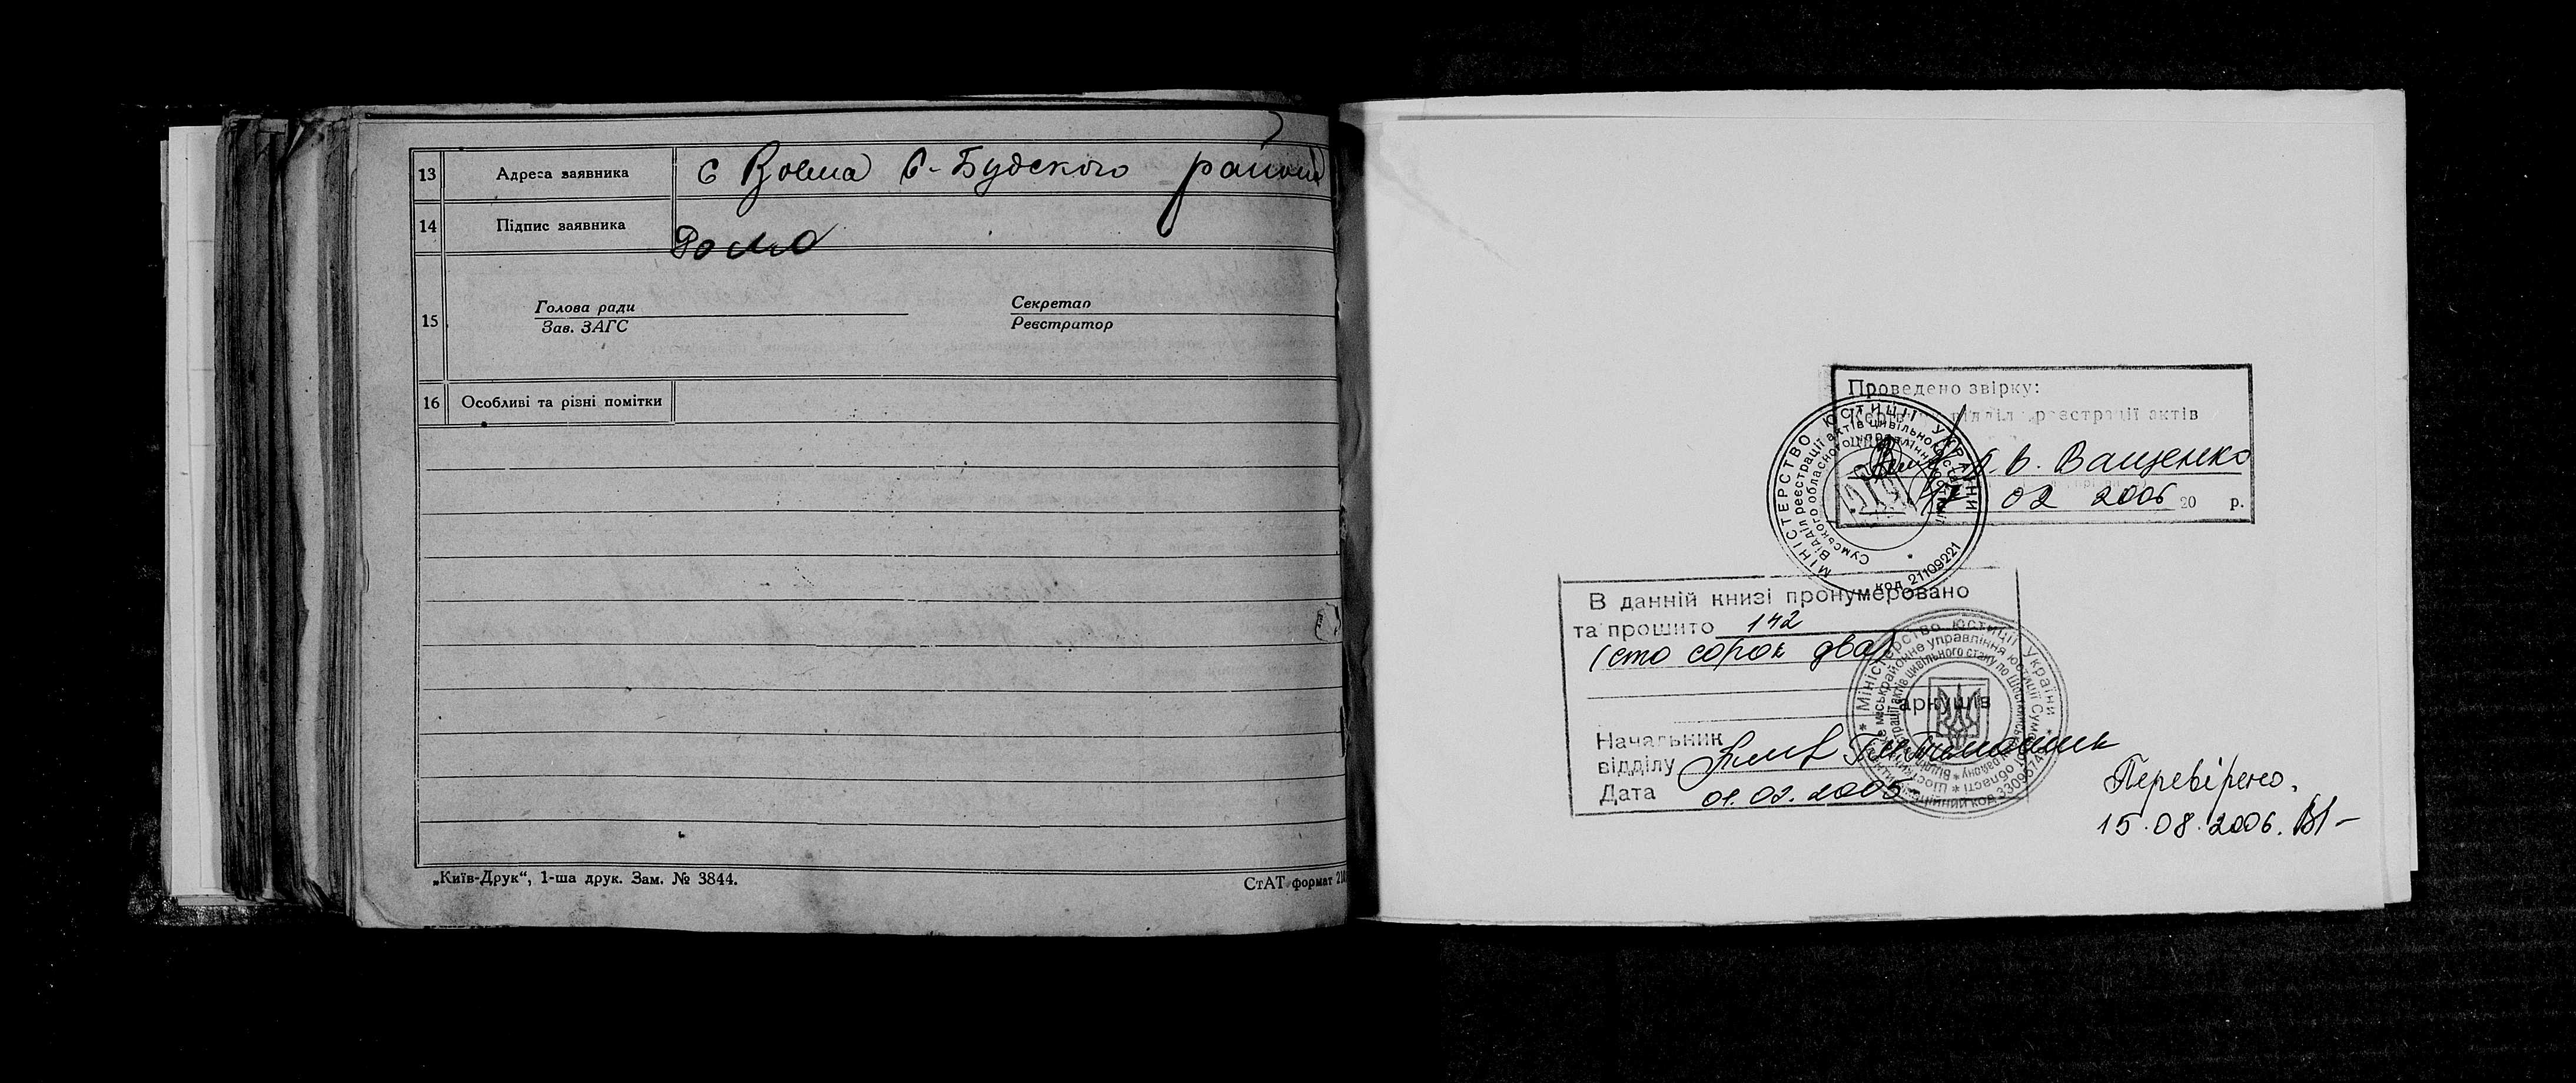 13 Адреса заявника с Ромо С.-Будского району
14 Підпис заявника
15 Голова ради Секретар
Зав. ЗАГС Реєстратор
16 Особливі та різні помітки
„Київ-Друк“, 1-ша друк. Зам. № 3844. СтАТ формат
Проведено звірку:
відділ реєстрації актів
В. Ващенко
02 2006 20 р.
МІНІСТЕРСТВО ЮСТИЦІЇ УКРАЇНИ
Відділ реєстрації актів цивільного
Сумського обласного управління юстиції
* код 21109221
В данній книзі пронумеровано
та прошито 142
(сто сорок два)
аркушів
Начальник
відділу
Дата 01.02.2005
* Міністерство юстиції України *
Перевірено.
15.08.2006.